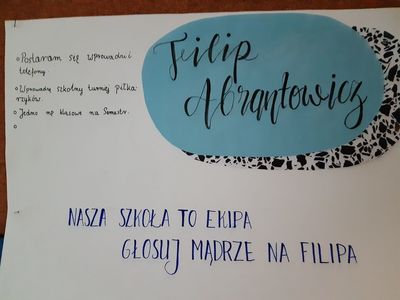 Filip
Abrantowicz
○ Postaram się wprowadzić
telefony.
○ Wprowadzę szkolny turniej piłka
rzyków.
○ Jedno np klasowe na Semestr.
○
NASZA SZKOŁA TO EKIPA
GŁOSUJ MĄDRZE NA FILIPA